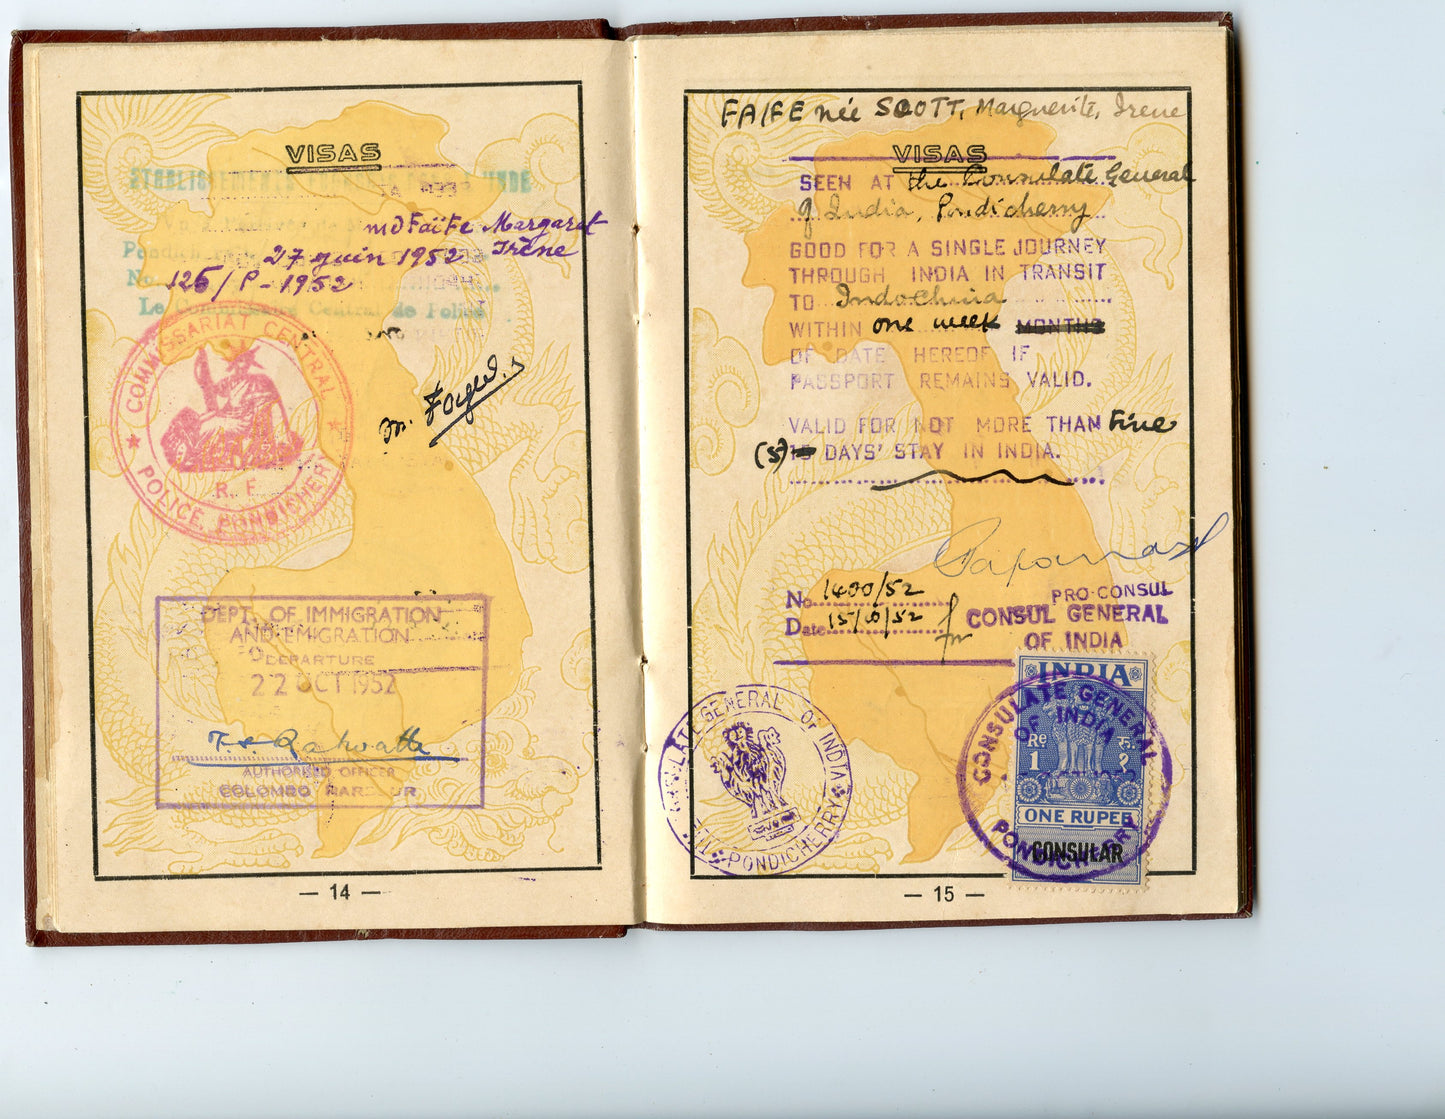 VISAS
ETABLISSEMENTS
md Faïfe Margaret
Irène
27 juin 1952
No 126/P-1952
Le Commissaire Central de Police
★ COMMISSARIAT CENTRAL ★
POLICE PONDICHERY
R. F.
DEPT. OF IMMIGRATION
AND EMIGRATION
DEPARTURE
22 OCT 1952
AUTHORISED OFFICER
COLOMBO HARBOUR
— 14 —
FAIFE née SCOTT, Marguerite, Irene
VISAS
SEEN AT the Consulate General
of India, Pondicherry
GOOD FOR A SINGLE JOURNEY
THROUGH INDIA IN TRANSIT
TO Indochina
WITHIN one week MONTHS
OF DATE HEREOF IF
PASSPORT REMAINS VALID.
VALID FOR NOT MORE THAN Five
(5) 15 DAYS' STAY IN INDIA.
No 1400/52
Date 15/10/52
for
PRO-CONSUL
CONSUL GENERAL
OF INDIA
CONSULATE GENERAL OF INDIA
PONDICHERRY
INDIA
CONSULATE GENERAL
OF INDIA
Re रु.
1 १
ONE RUPEE
CONSULAR
PONDICHERRY
— 15 —